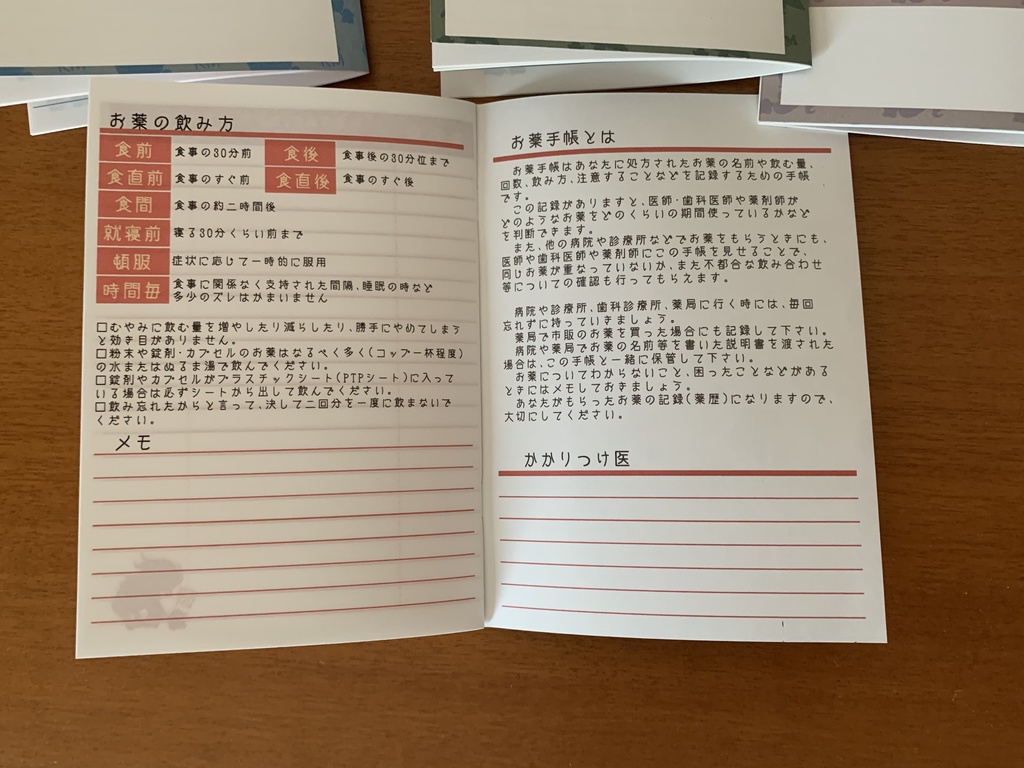 お薬の飲み方
食前 食事の30分前 食後 食事後の30分位まで
食直前 食事のすぐ前 食直後 食事のすぐ後
食間 食事の約二時間後
就寝前 寝る30分くらい前まで
頓服 症状に応じて一時的に服用
時間毎 食事に関係なく支持された間隔、睡眠の時など
多少のズレはかまいません
□むやみに飲む量を増やしたり減らしたり、勝手にやめてしまう
と効き目がありません。
□粉末や錠剤・カプセルのお薬はなるべく多く(コップ一杯程度)
の水またはぬるま湯で飲んでください。
□錠剤やカプセルがプラスチックシート(PTPシート)に入って
いる場合は必ずシートから出して飲んでください。
□飲み忘れたからと言って、決して二回分を一度に飲まないで
ください。
メモ
お薬手帳とは
お薬手帳はあなたに処方されたお薬の名前や飲む量、
回数、飲み方、注意することなどを記録するための手帳
です。
この記録がありますと、医師・歯科医師や薬剤師が
どのようなお薬をどのくらいの期間使っているかなど
を判断できます。
また、他の病院や診療所などでお薬をもらうときにも、
医師や歯科医師や薬剤師にこの手帳を見せることで、
同じお薬が重なっていないか、また不都合な飲み合わせ
等についての確認も行ってもらえます。
病院や診療所、歯科診療所、薬局に行く時には、毎回
忘れずに持っていきましょう。
薬局で市販のお薬を買った場合にも記録して下さい。
病院や薬局でお薬の名前等を書いた説明書を渡された
場合は、この手帳と一緒に保管して下さい。
お薬についてわからないこと、困ったことなどがある
ときにはメモしておきましょう。
あなたがもらったお薬の記録(薬歴)になりますので、
大切にしてください。
かかりつけ医